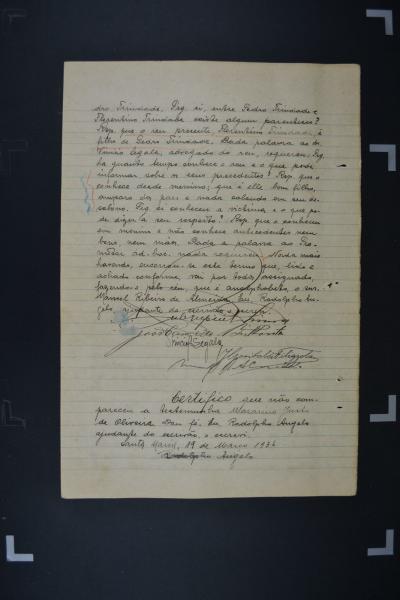 dro Trindade. Prg. si, entre Pedro Trindade e
Florentino Trindade existe algum parentesco?
Resp. que o reu presente, Florentino Trindade, é
filho de Pedro Trindade. Dada palavra ao dr.
Segala, advogado do reu, requereu: Prg.
ha quanto tempo conhece o reu e o que pode
informar sobre os seus precedentes? Resp. que o
conhece desde menino; que é elle bom filho,
amparo dos paes e nada sabendo em seu de-
sabono. Prg. si conheceu a victima e o que po-
de dizer a seu respeito? Resp. que o conheceu
em menino e não conhece antecedentes nem
bons, nem maus. Dada a palavra ao Pro-
motor ad-hoc, nada requereu. Nada mais
havendo, encerrou-se este termo que, lido e
achado conforme, vai por todos assignado,
fazendo-o pelo réu, que é analphabeto, o snr.
Manoel Ribeiro de Almeida. Eu, Radolpho An-
gelo, ajudante do escrivão o escrevi.
Segala
Certifico que não com-
pareceu a testemunha
de Oliveira. Dou fé. Eu, Radolpho Angelo
ajudante do escrivão, o escrevi.
Santa Maria, 19 de Março 1936
Radolpho Angelo